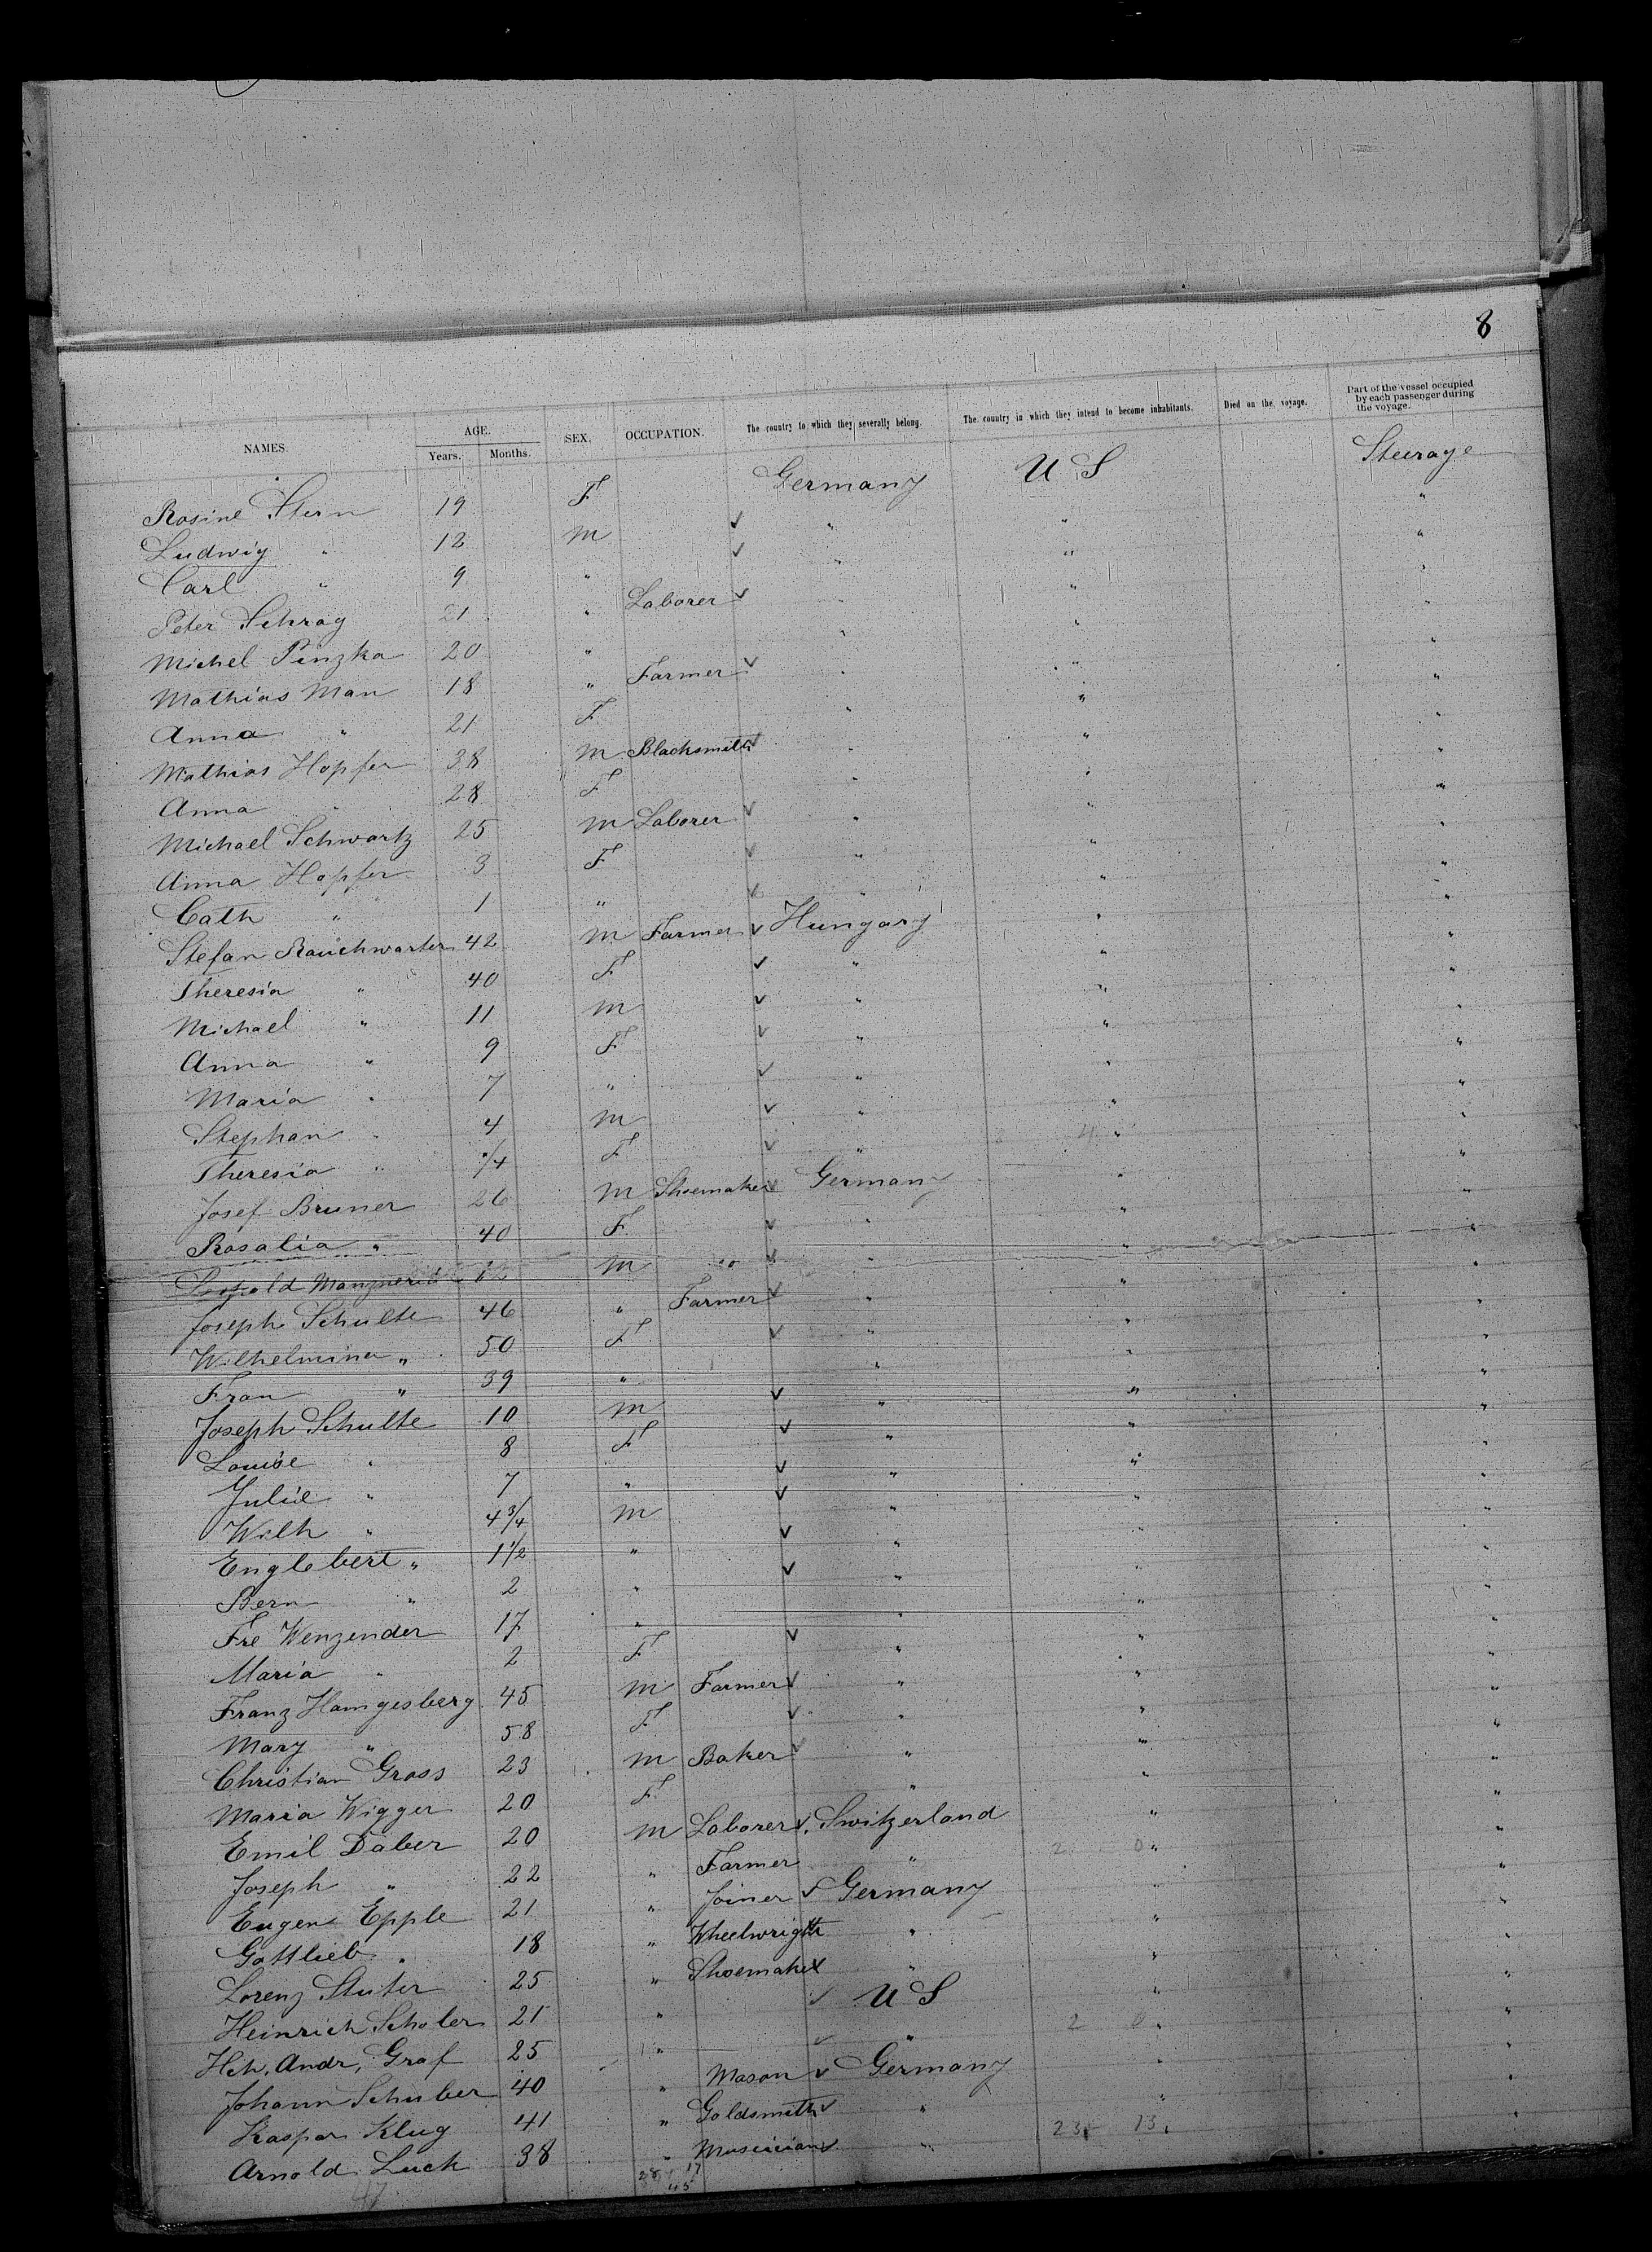 8
NAMES. AGE. Years. Months. SEX. OCCUPATION. The country to which they severally belong. The country in which they intend to become inhabitants. Died on the voyage. Part of the vessel occupied by each passenger during the voyage.
Rosine Stern 19 F Germany U S Steerage
Ludwig " 12 M ✓ " " "
Carl " 9 " ✓ " " "
Peter Schrag 21 " Laborer ✓ " " "
Michel Pinzka 20 " " " "
Mathias Man 18 " Farmer ✓ " " "
Anna " 21 F " " "
Mathias Hopfer 38 M Blacksmith ✓ " " "
Anna " 28 F " " "
Michael Schwartz 25 M Laborer ✓ " " "
Anna Hopfer 3 F ✓ " " "
Cath " 1 " ✓ " " "
Stefan Rauchwarter 42 M Farmer ✓ Hungary " "
Theresia " 40 F ✓ " " "
Michael " 11 M ✓ " " "
Anna " 9 F ✓ " " "
Maria " 7 " ✓ " " "
Stephan " 4 M ✓ " " "
Theresia " /4 F ✓ " 4 " "
Josef Bruner 26 M Shoemaker ✓ Germany " "
Rosalia " 40 F ✓ " " "
Leopold 12 M " ✓ " " "
Joseph Schulte 46 " Farmer ✓ " " "
Wilhelmina " 50 F ✓ " " "
Fran " 39 " " " "
Joseph Schulte 10 M ✓ " " "
Louise " 8 F ✓ " " "
Julie " 7 " ✓ " " "
Wilh " 4 3/4 M ✓ " " "
Englebert " 1 1/2 " ✓ " " "
Bern " 2 " ✓ " " "
Fre Wenzender 17 " " " "
Maria " 2 F ✓ " " "
Franz Hamgesberg 45 M Farmer ✓ " " "
Mary " 58 F ✓ " " "
Christian Gross 23 M Baker ✓ " " "
Maria Wigger 20 F " " "
Emil Daber 20 M Laborer ✓ Switzerland " "
Joseph " 22 " Farmer " 2 0 " "
Eugen Epple 21 " Joiner ✓ Germany " "
Gottlieb " 18 " Wheelwrigth " " "
Lorenz Stuter 25 " Shoemaker " " "
Heinrich Scholer 21 " ✓ U S " "
Hch. Andr. Graf 25 " ✓ " 2 0 " "
Johann Schuber 40 " Mason ✓ Germany " "
Kaspar Klug 41 " Goldsmith ✓ " " "
Arnold Luck 38 " Musician ✓ " 23 13 " "
47 28 17
45